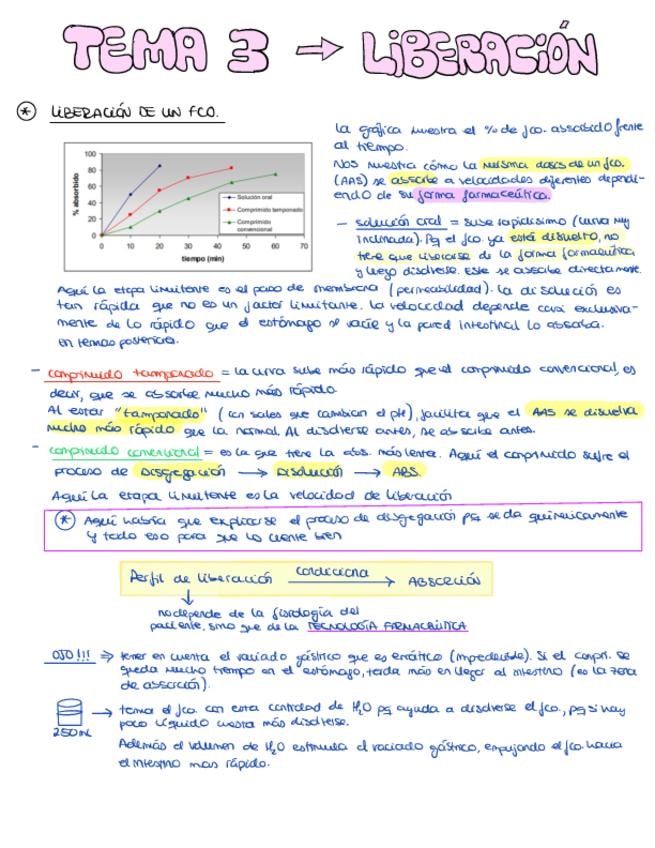 TEMA 3 → LIBERACIÓN
* LIBERACIÓN DE UN FCO.
La gráfica muestra el % de fco. absorbido frente
al tiempo.
Nos muestra cómo la misma dosis de un fco.
(AAS) se absorbe a velocidades diferentes dependi-
endo de su forma farmacéutica.
% absorbido
100
80
60
40
20
0
0 10 20 30 40 50 60 70
tiempo (min)
Solución oral
Comprimido tamponado
Comprimido
convencional
- solución oral = sube rapidísimo (curva muy
inclinada). Pq el fco. ya está disuelto, no
tiene que liberarse de la forma farmacéutica
y luego disolverse. Este se absorbe directamente.
Aquí la etapa limitante es el paso de membrana (permeabilidad). La disolución es
tan rápida que no es un factor limitante. La velocidad depende casi exclusiva-
mente de lo rápido que el estómago se vacíe y la pared intestinal lo absorba.
en temas posteriores.
- comprimido tamponado = la curva sube más rápido que el comprimido convencional, es
decir, que se absorbe mucho más rápido.
Al estar "tamponado" (con sales que cambian el pH), facilita que el AAS se disuelva
mucho más rápido que la normal. Al disolverse antes, se absorbe antes.
- comprimido convencional = es la que tiene la abs. más lenta. Aquí el comprimido sufre el
proceso de DISGREGACIÓN → DISOLUCIÓN → ABS.
Aquí la etapa limitante es la velocidad de liberación
* Aquí habría que explicarse el proceso de disgregación pq se da químicamente
y todo eso para que lo cuente bien
Perfil de liberación condiciona → ABSORCIÓN
↓
no depende de la fisiología del
paciente, sino que de la TECNOLOGÍA FARMACÉUTICA
OJO!!! ⇒ tener en cuenta el vaciado gástrico que es errático (impredecible). Si el compri. se
queda mucho tiempo en el estómago, tarda más en llegar al intestino (es la zona
de absorción).
250mL → toma el fco. con esta cantidad de H₂O pq ayuda a disolverse el fco., pq si hay
poco líquido cuesta más disolverse.
Además el volumen de H₂O estimula el vaciado gástrico, empujando el fco. hacia
el intestino mas rápido.